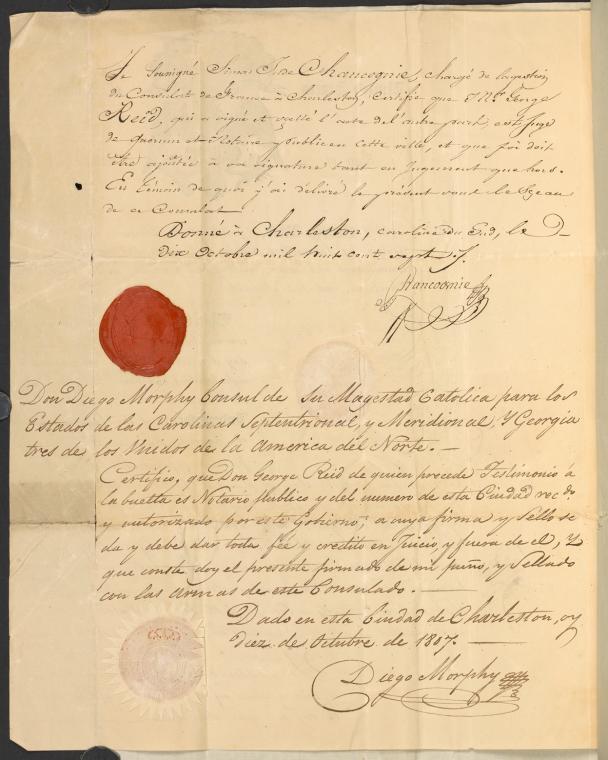 Je Sousigné Simon Jude Chancognie, chargé de la gestion
du Consulat de France à Charleston, Certifie que Mr. George
Reid, qui a signé et scellé l'acte de l'autre part, est Juge
de Quorum et Notaire public en cette ville, et que foi doit
être ajoutée à sa signature tant en Jugement que hors.
En témoin de quoi j'ai délivré le présent sous le Sceau
de ce Consulat.
Donné à Charleston, caroline du Sud, le
dix Octobre mil huit cent sept.
Chancognie
Don Diego Morphy Consul de Su Magestad Catolica para los
Estados de las Carolinas Septentrional, y Meridional, y Georgia
tres de los Unidos de la America del Norte. —
Certifico, que Don George Reid de quien precede Testimonio a
la buelta es Notario publico y del numero de esta Ciudad recdo
y autorizado por este Gobierno; a cuya firma y Sello se
da y debe dar toda fée y credito en Juicio y fuera de el, Y
que conste doy el presente firmado de mi puño, y Sellado
con las Armas de este Consulado. —
Dado en esta Ciudad de Charleston, oy
diez de Octubre de 1807. —
Diego Morphy